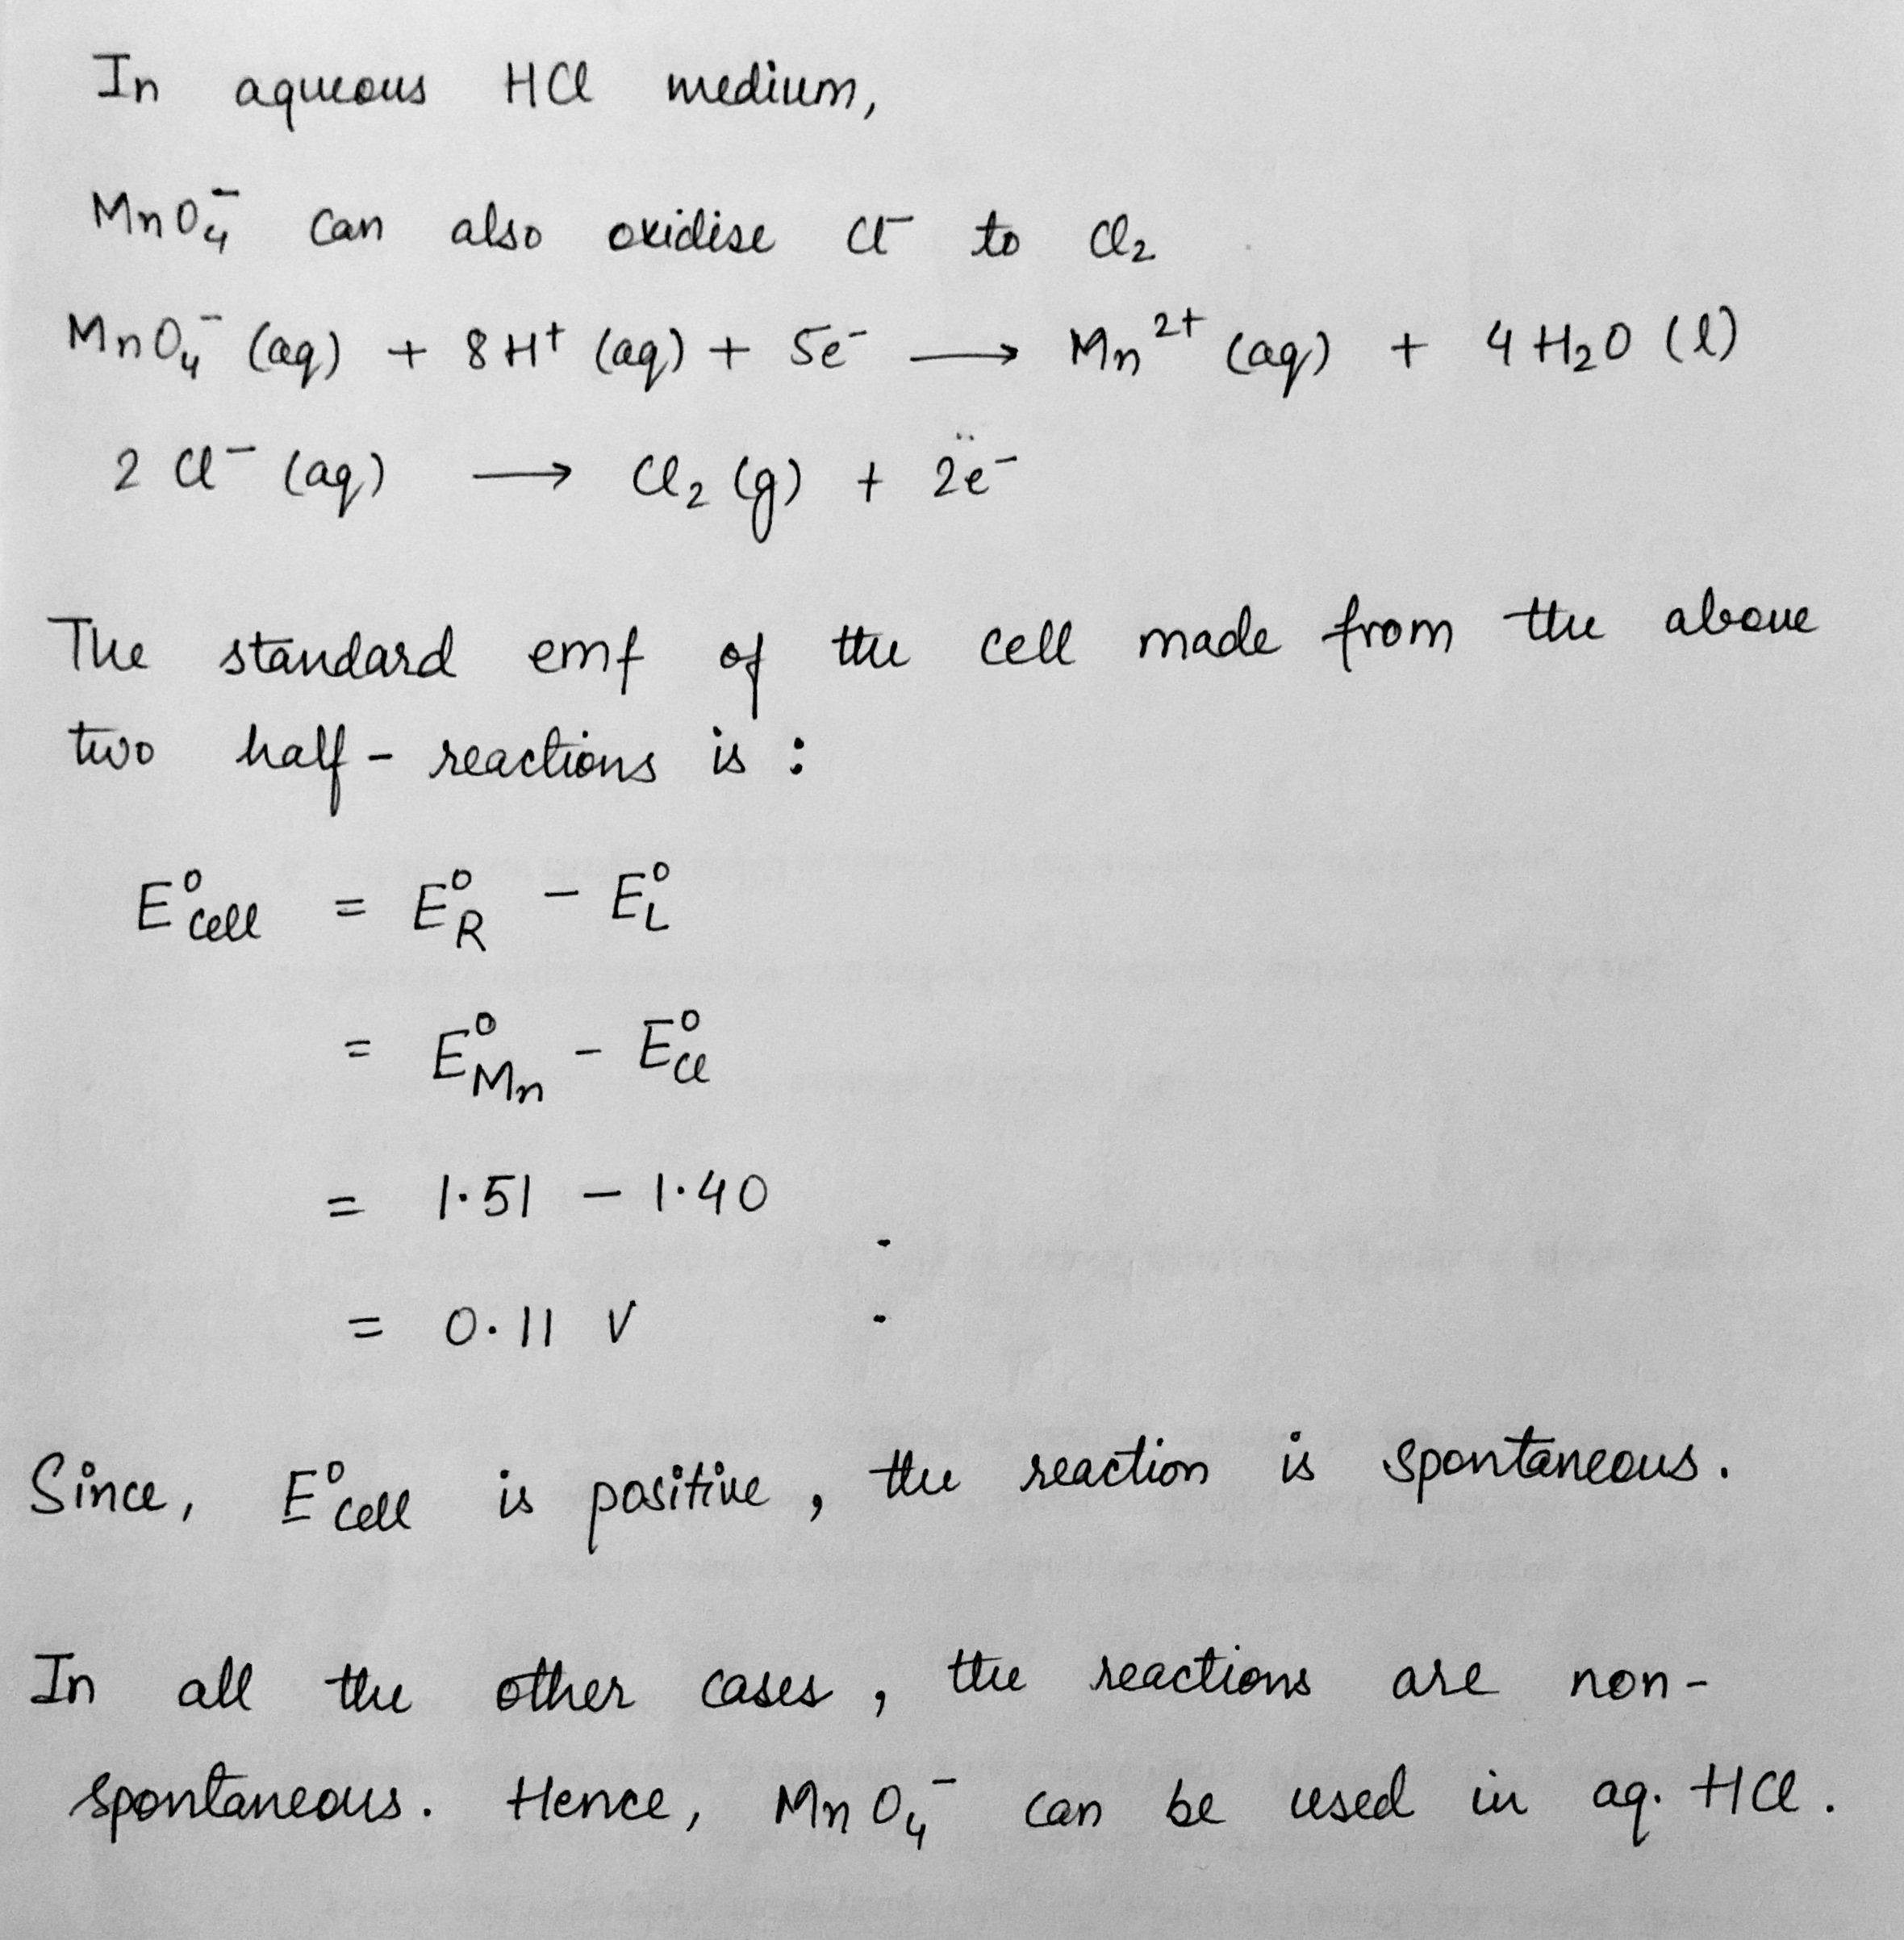 In aqueous HCl medium,
MnO₄⁻ can also oxidise Cl⁻ to Cl₂
MnO₄⁻ (aq) + 8H⁺ (aq) + 5e⁻ ⟶ Mn²⁺ (aq) + 4H₂O (l)
2Cl⁻ (aq) ⟶ Cl₂ (g) + 2e⁻
The standard emf of the cell made from the above
two half-reactions is :
E°cell = E°R - E°L
= E°Mn - E°Cl
= 1.51 - 1.40
= 0.11 V
Since, E°cell is positive, the reaction is spontaneous.
In all the other cases, the reactions are non-
spontaneous. Hence, MnO₄⁻ can be used in aq. HCl.